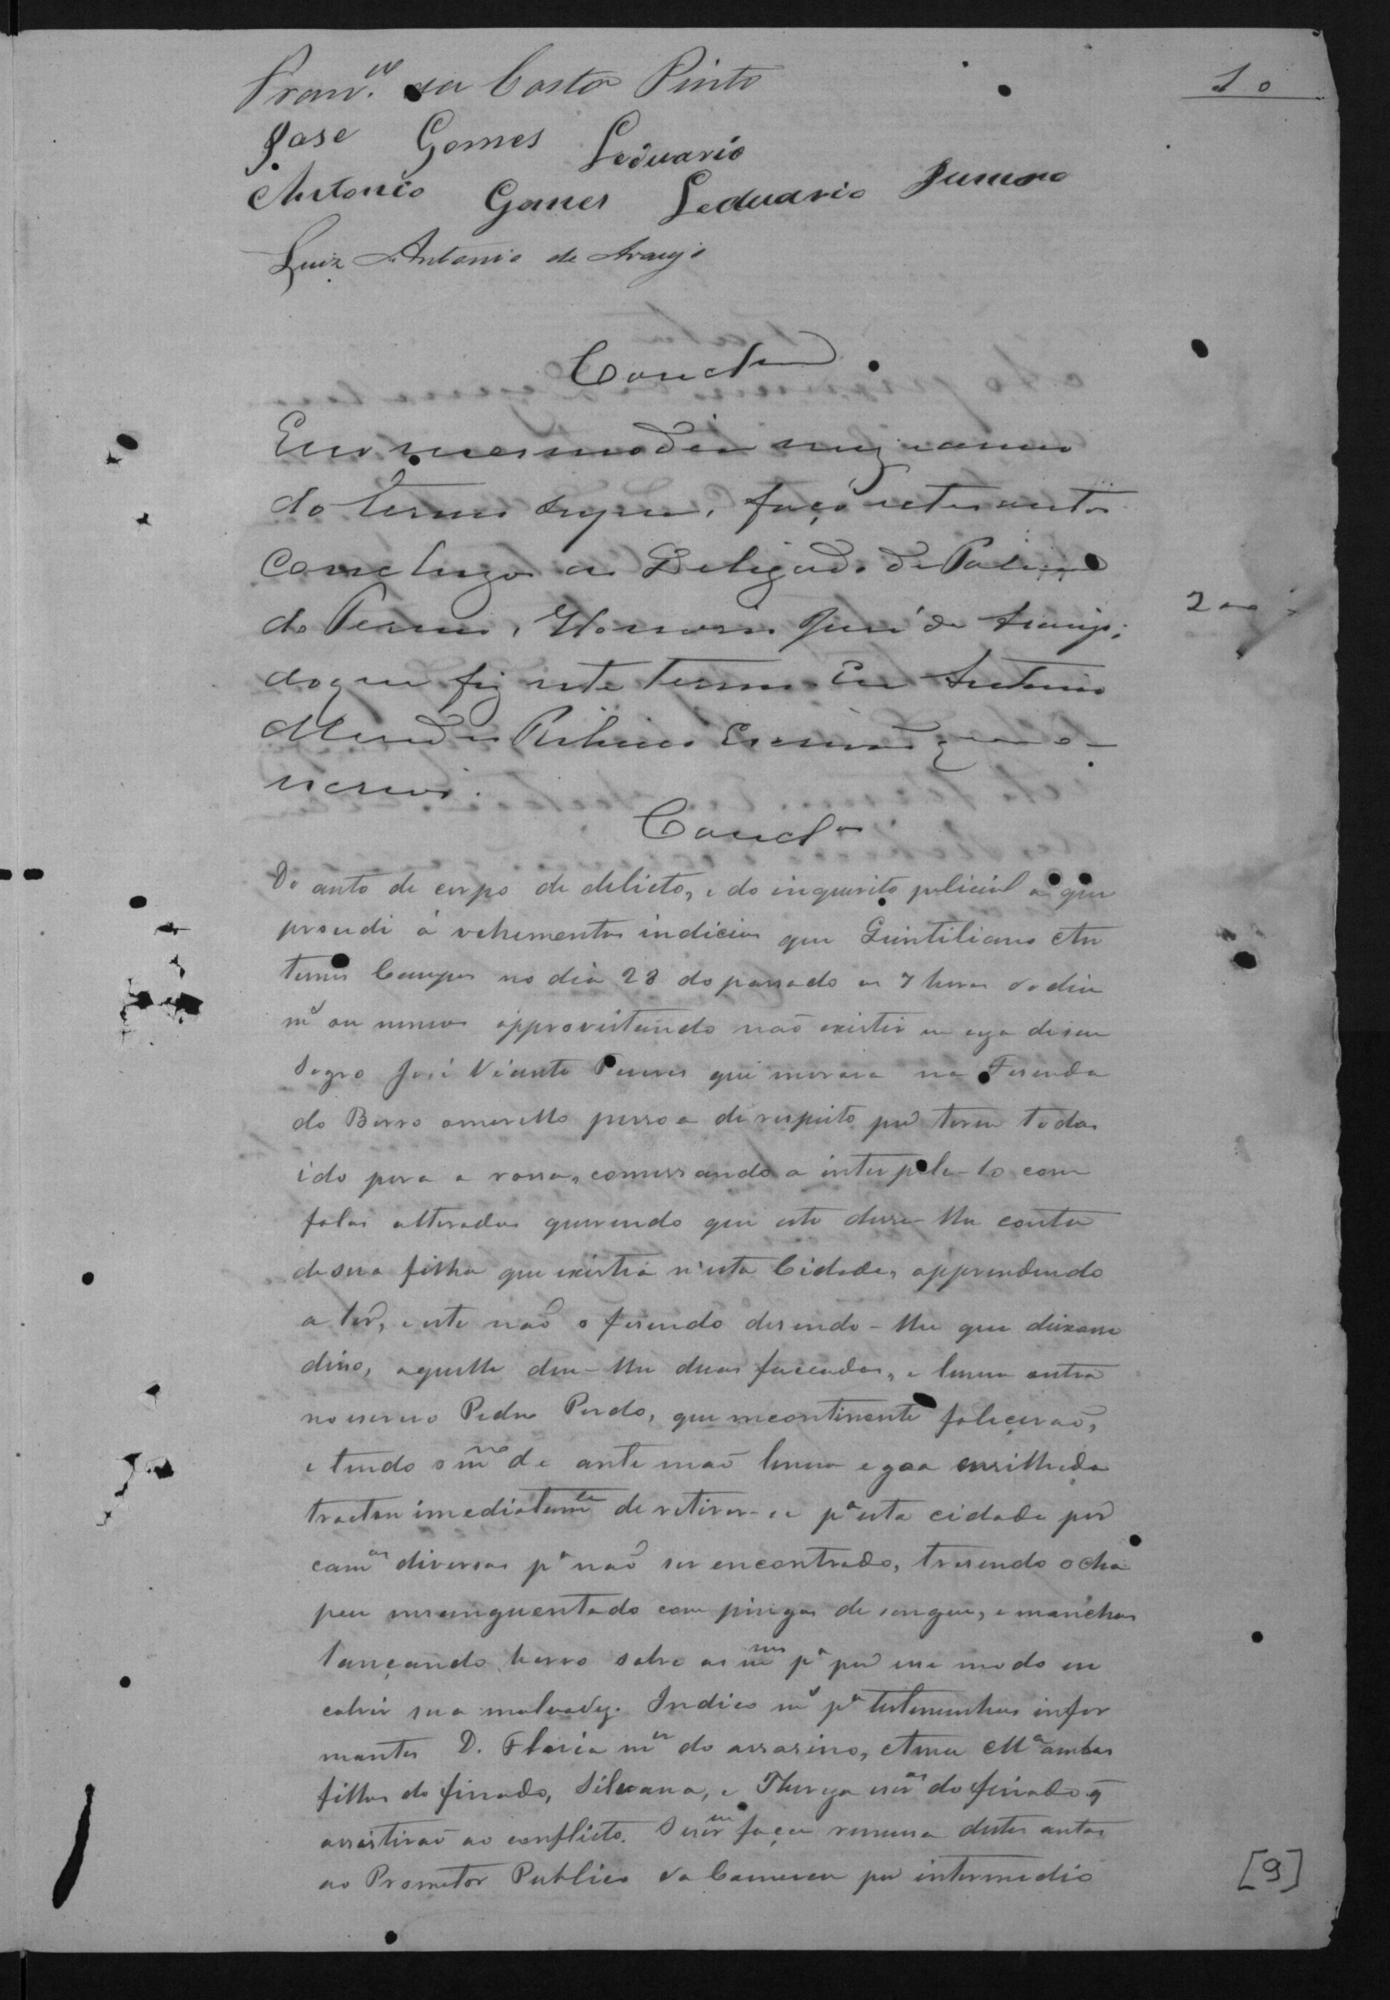 Fran.co da Costa Pinto
10
Jose Gomes Leduario
Antonio Gomes Leduario Junior
Luiz Antonio de Araujo
Concl
Em o mesmo dia mez e anno
do termo supra, faço estes autos
concluzos ao Delegado de Policia
do Termo, Honorio José de Araujo;
do que fiz este termo. Eu Antonio
Mendes Ribeiro Escrivão que o
escrevi.
200
Concl.os
Do auto de corpo de delicto, e do inquerito policial a que
prosedi á vehementes indicios que Quintiliano An
tunes Campos no dia 28 do passado as 7 horas do dia
m.s ou menos approveitando não existir em caza de seu
sogro José Vicente que morava na Fasenda
do Barro amarello pessoa de respeito por terem todos
ido para a rossa, comessando a interpela-lo com
falas alteradas querendo que este desse-lhe conta
de sua filha que existia n'esta Cidade, apprendendo
a ler, e este não o fasendo disendo-lhe que deixasse
disso, aquelle deu-lhe duas faccadas, e huma outra
no escravo Pedro Pardo, que incontinente faleçerão,
e tendo o m.mo de ante mão huma egoa ensilhada
tractou imediatam.te de retirar-se p.a esta cidade por
cam.os diversos p.a não ser encontrado, trasendo o cha
peu ensanguentado com pingos de sangue, e manchas
lançando barro sobre as m.mas p.a por esse modo en
cobrir sua malvadez. Indico m.s p.a testemunhas infor
mantes D. Flavia m.er do assasino, Anna M.a ambas
filhas do finado, Silvana, e Thereza escr.as do finado q
assistirão ao conflicto. O Escr.m faça remessa destes autos
ao Promotor Publico da Comarca por intermedio
[9]